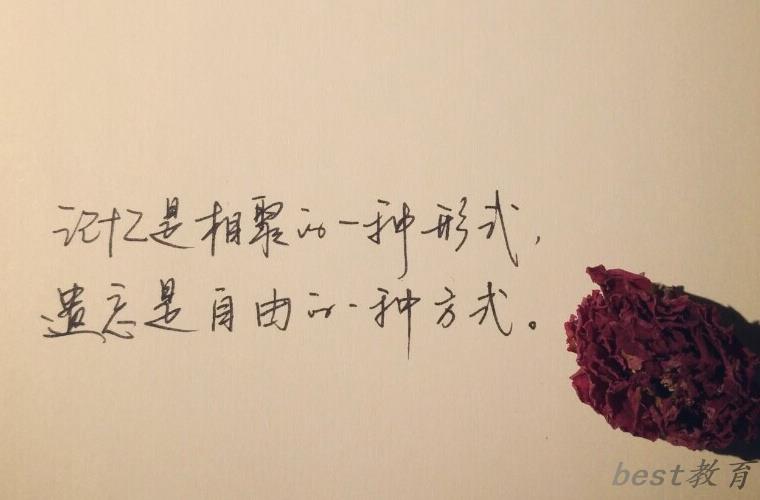 记忆是相聚的一种形式，
遗忘是自由的一种方式。
best教育